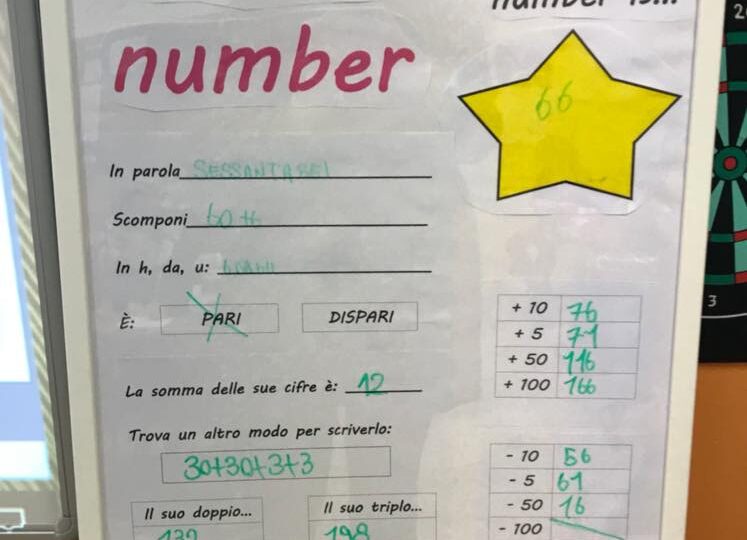 number is...
number
66
In parola SESSANTASEI
Scomponi 60+6
In h, da, u:
È: PARI DISPARI
La somma delle sue cifre è: 12
Trova un altro modo per scriverlo:
30+30+3+3
Il suo doppio... Il suo triplo...
132 198
+ 10 76
+ 5 71
+ 50 116
+ 100 166
- 10 56
- 5 61
- 50 16
- 100
3